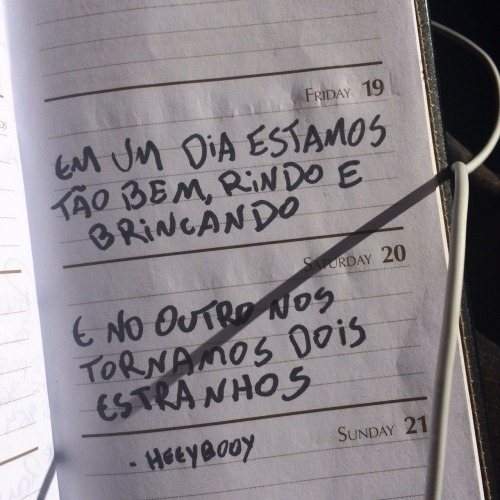 FRIDAY 19
EM UM DIA ESTAMOS
TÃO BEM, RINDO E
BRINCANDO
SATURDAY 20
E NO OUTRO NOS
TORNAMOS DOIS
ESTRANHOS
SUNDAY 21
- HEEYBOOY